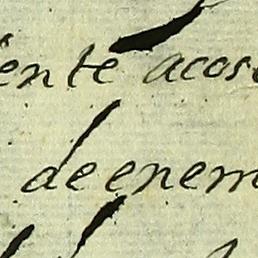 ente acos
de enem